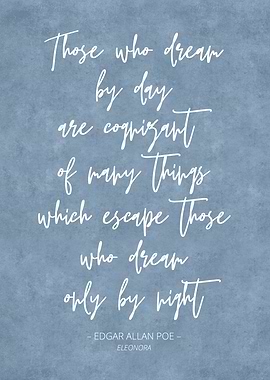 Those who dream
by day
are cognizant
of many things
which escape those
who dream
only by night
– EDGAR ALLAN POE –
ELEONORA